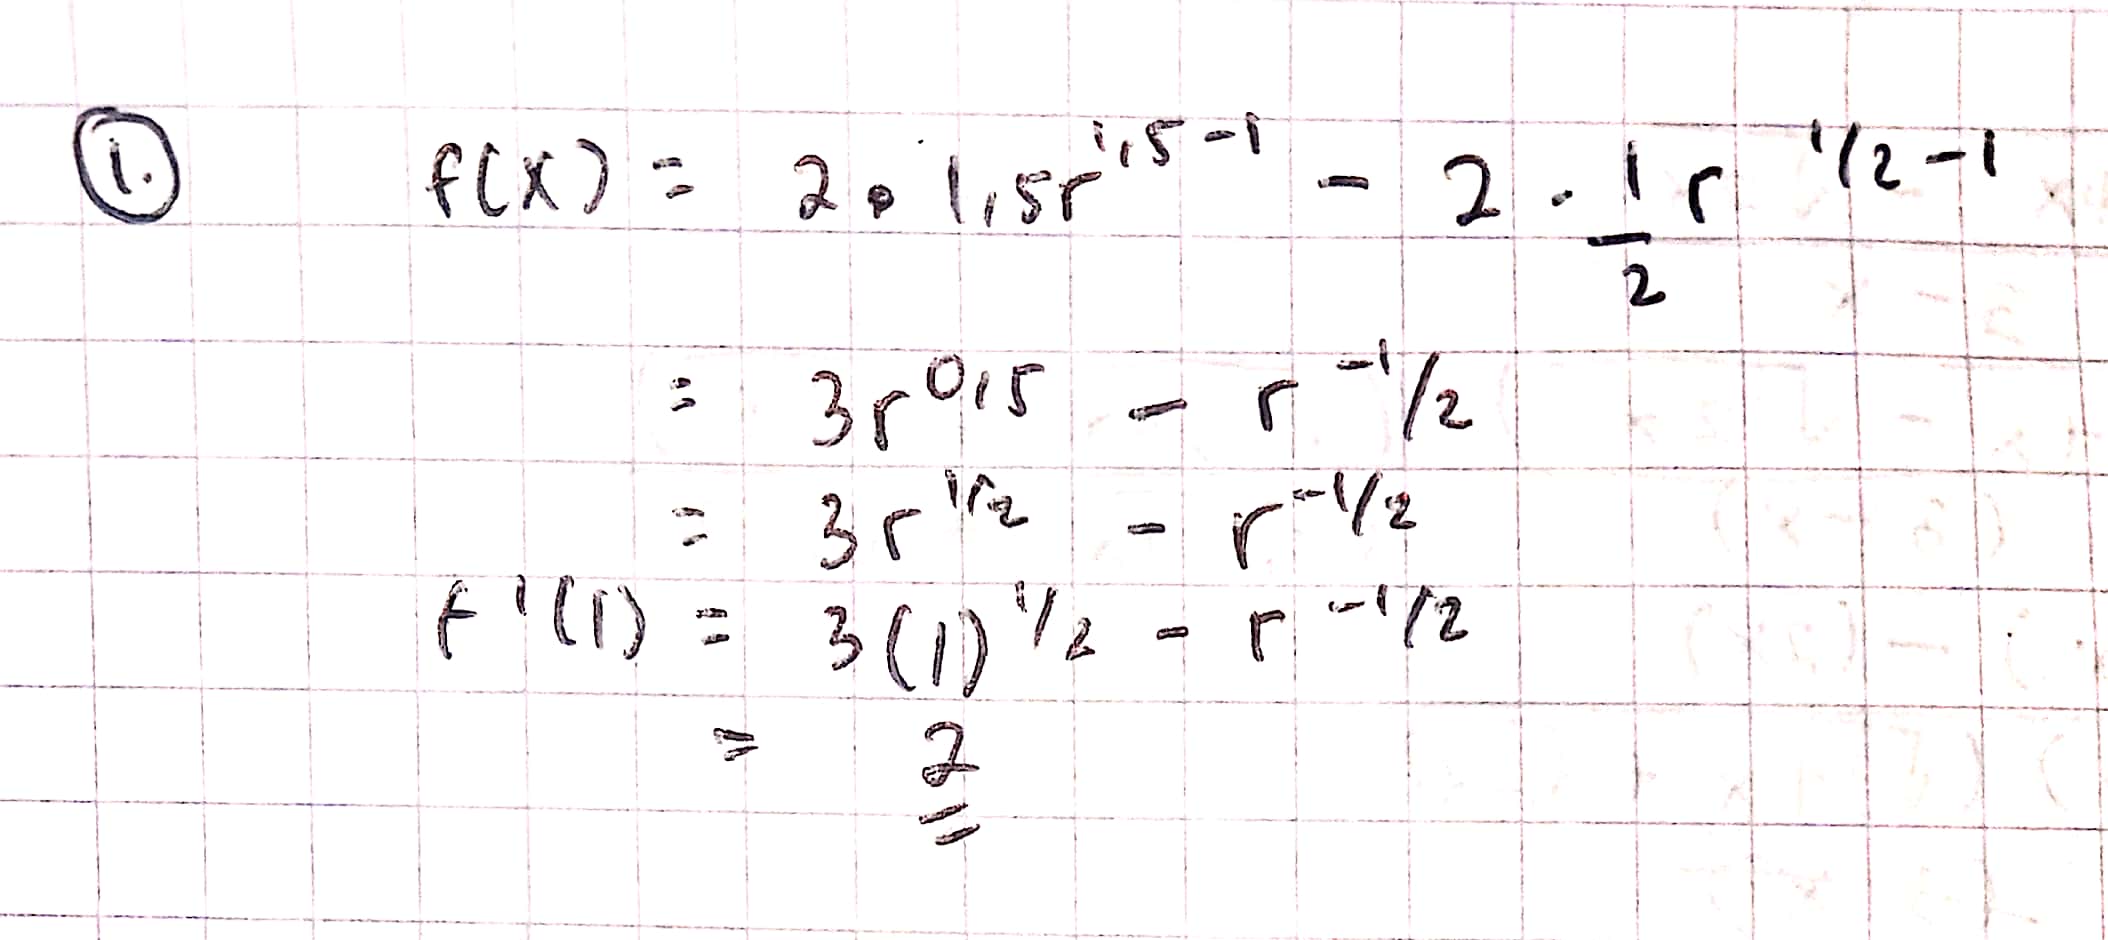 1. f(x) = 2 • 1,5r^1,5-1 - 2 · 1/2 r^1/2-1
= 3r^0,5 - r^-1/2
= 3r^1/2 - r^-1/2
f'(1) = 3(1)^1/2 - r^-1/2
= 2